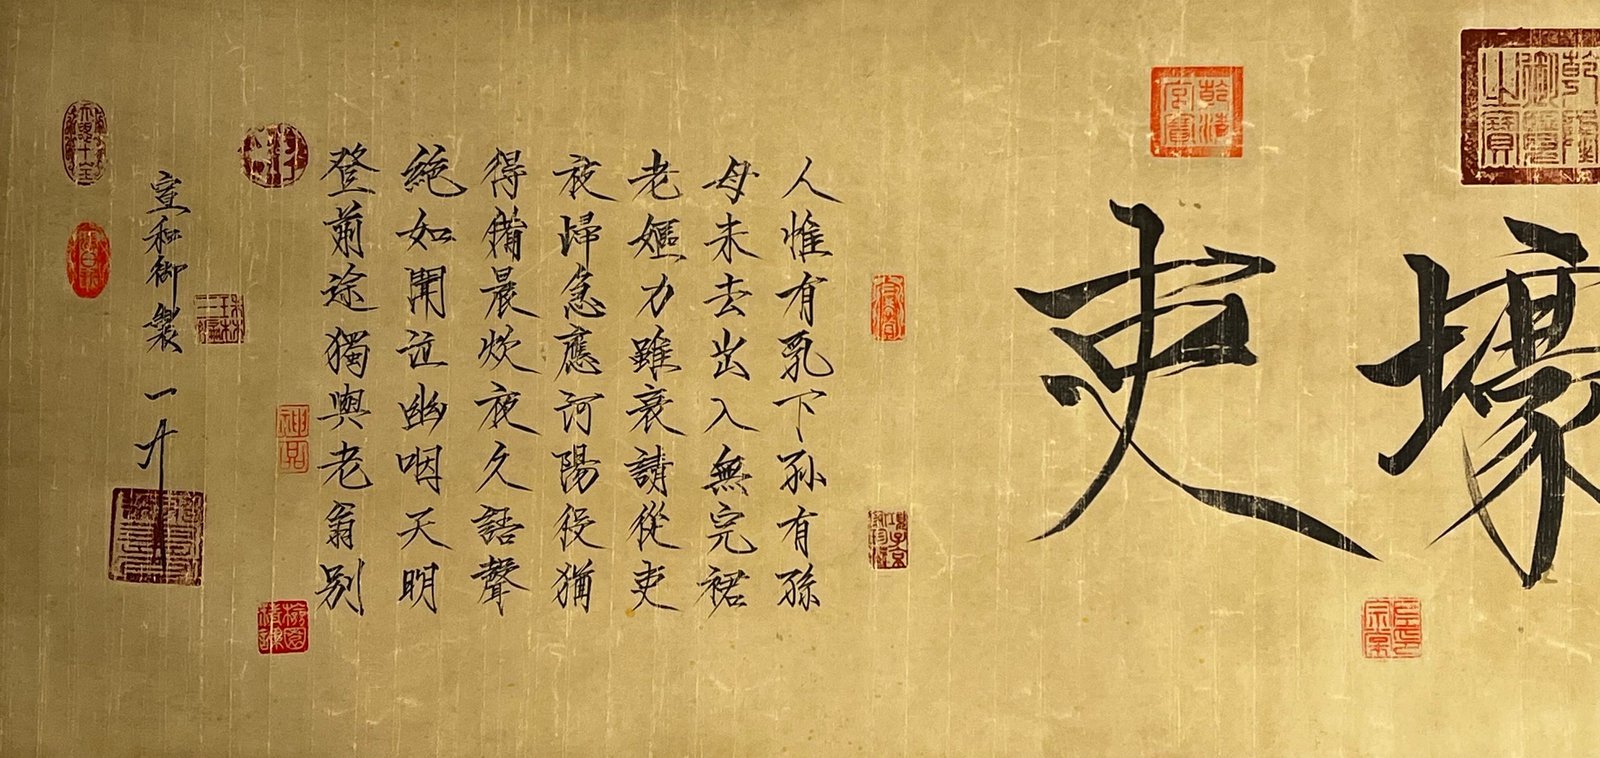 乾隆御覽之寶
壕吏
人惟有乳下孫有孫
母未去出入無完裙
老嫗力雖衰請從吏
夜歸急應河陽役猶
得備晨炊夜久語聲
絶如聞泣幽咽天明
登前途獨與老翁別
宣和御製
神品